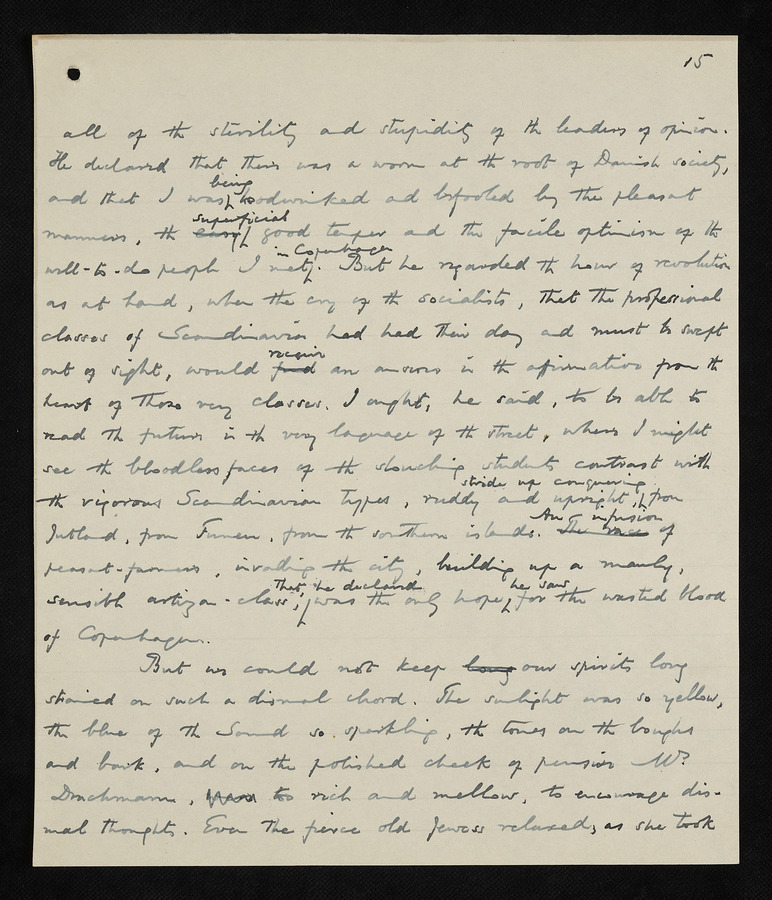 15
all of the sterility and stupidity of the leaders of opinion.
He declared that there was a worm at the root of Danish society,
being
and that I was hoodwinked and befooled by the pleasant
superficial
manners, the easy good temper and the facile optimism of the
in Copenhagen
well-to-do people I met. But he regarded the hour of revolution
as at hand, when the cry of the socialists, that the professional
classes of Scandinavia had had their day and must be swept
receive
out of sight, would find an answer in the affirmative from the
heart of those very classes. I ought, he said, to be able to
read the future in the very language of the street, where I might
see the bloodless faces of the slouching students contrast with
stride up conquering
the vigorous Scandinavian types, ruddy and upright, from
An infusion
Jutland, from Funen, from the southern islands. The race of
peasant-farmers, invading the city, building up a manly,
That, he declared he saw
sensible artizan-class, was the only hope for the wasted blood
of Copenhagen.
But we could not keep long our spirits long
strained on such a dismal chord. The sunlight was so yellow,
the blue of the Sound so sparkling, the tones on the boughs
and bark, and on the polished cheek of pensive Mr.
Drachmann, too rich and mellow, to encourage dis-
mal thoughts. Even the fierce old Jewess relaxed, as she took